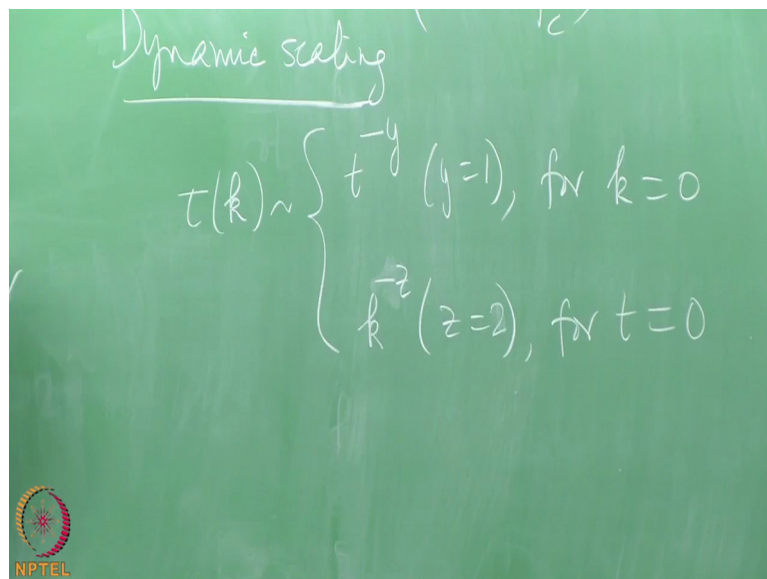 Dynamic scaling
τ(k) ~ { t^{-y} (y=1), for k=0
k^{-z} (z=2), for t=0
NPTEL